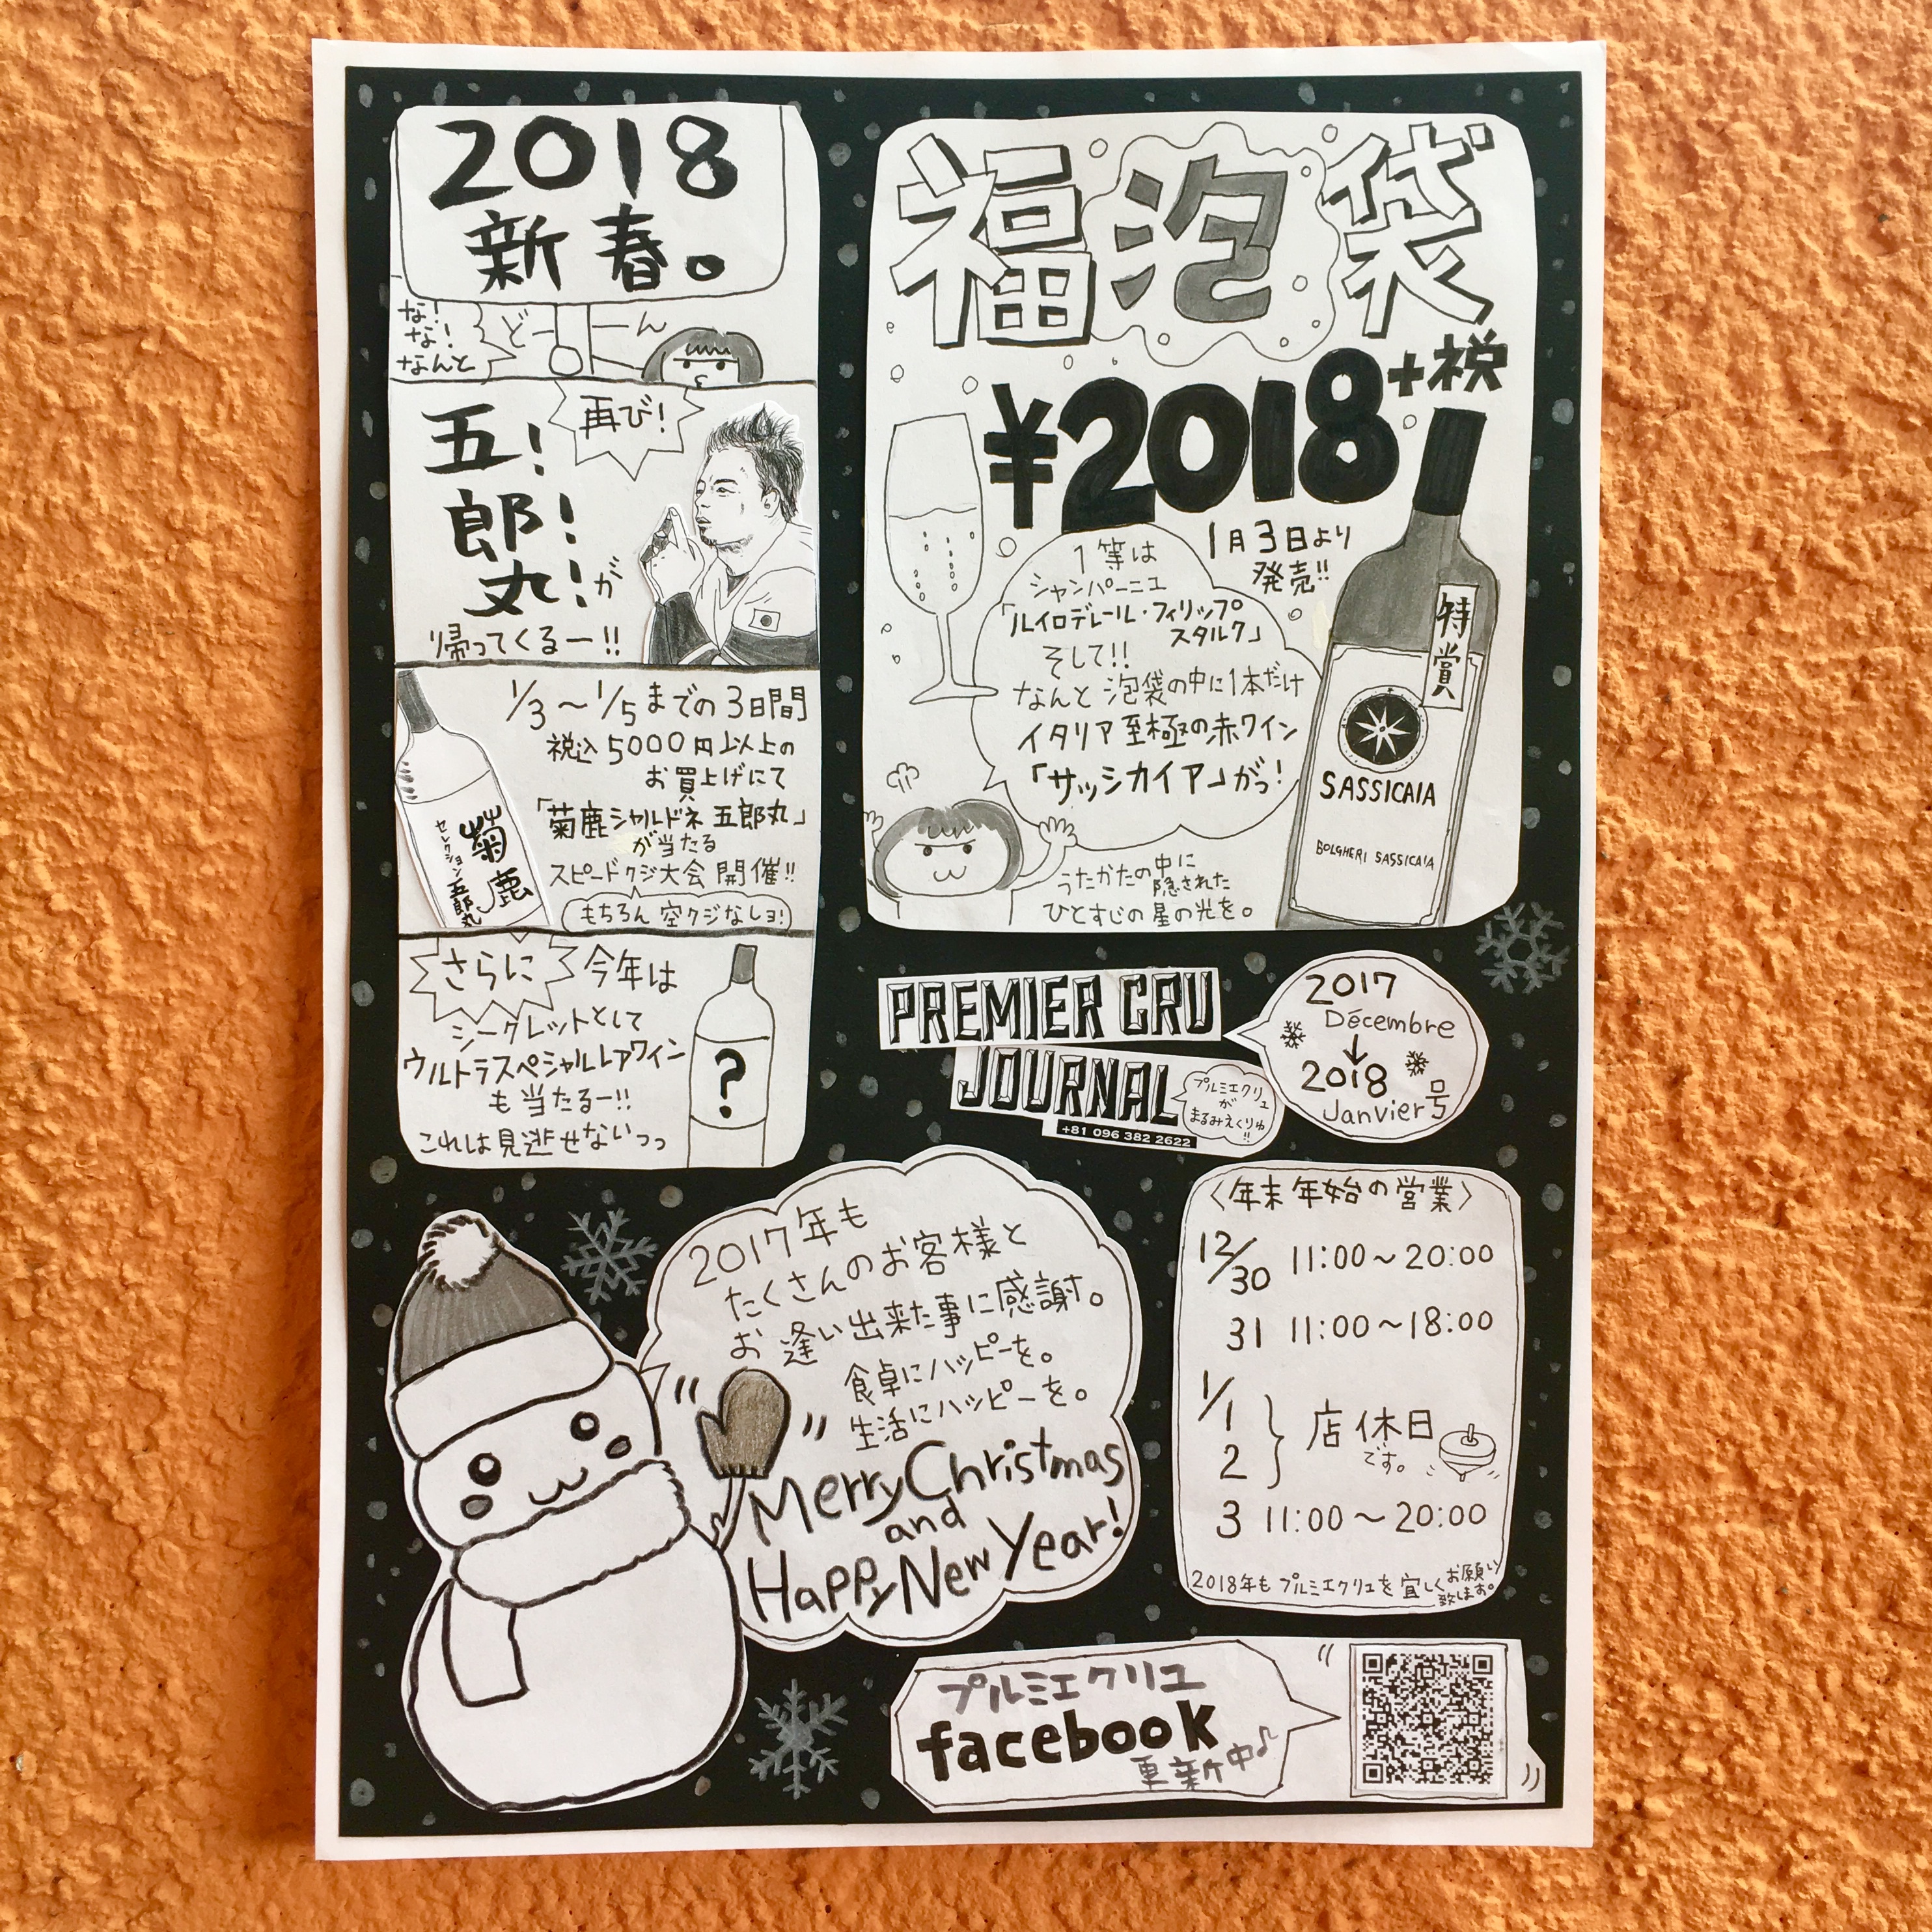 2018
新春。
な!
な!
なんと
どーーん
再び!
五!
郎!
丸!が
帰ってくるー!!
1/3～1/5までの3日間
税込5000円以上の
お買上げにて
「菊鹿シャルドネ 五郎丸」
が当たる
スピードクジ大会開催!!
もちろん空クジなしョ!
菊鹿
セレクション五郎丸
さらに
今年は
シークレットとして
ウルトラスペシャルレアワイン
も当たるー!!
これは見逃せないっっ
?
福泡袋
¥2018+税
1月3日より
発売!!
1等は
シャンパーニュ
「ルイロデレール・フィリップ
スタルク」
そして!!
なんと泡袋の中に1本だけ
イタリア至極の赤ワイン
「サッシカイア」がっ!
特賞
SASSICAIA
BOLGHERI SASSICAIA
うたかたの中に
隠された
ひとすじの星の光を。
PREMIER CRU
JOURNAL
プルミエクリュ
が
まるみえくりゅ
!!
+81 096 382 2622
2017
Décembre
↓
2018
Janvier号
2017年も
たくさんのお客様と
お逢い出来た事に感謝。
食卓にハッピーを。
生活にハッピーを。
Merry Christmas
and
Happy New Year!
〈年末年始の営業〉
12/30 11:00～20:00
31 11:00～18:00
1/1
2
店休日
です。
3 11:00～20:00
2018年もプルミエクリュを宜しくお願い
致します。
プルミエクリュ
facebook
更新中♪